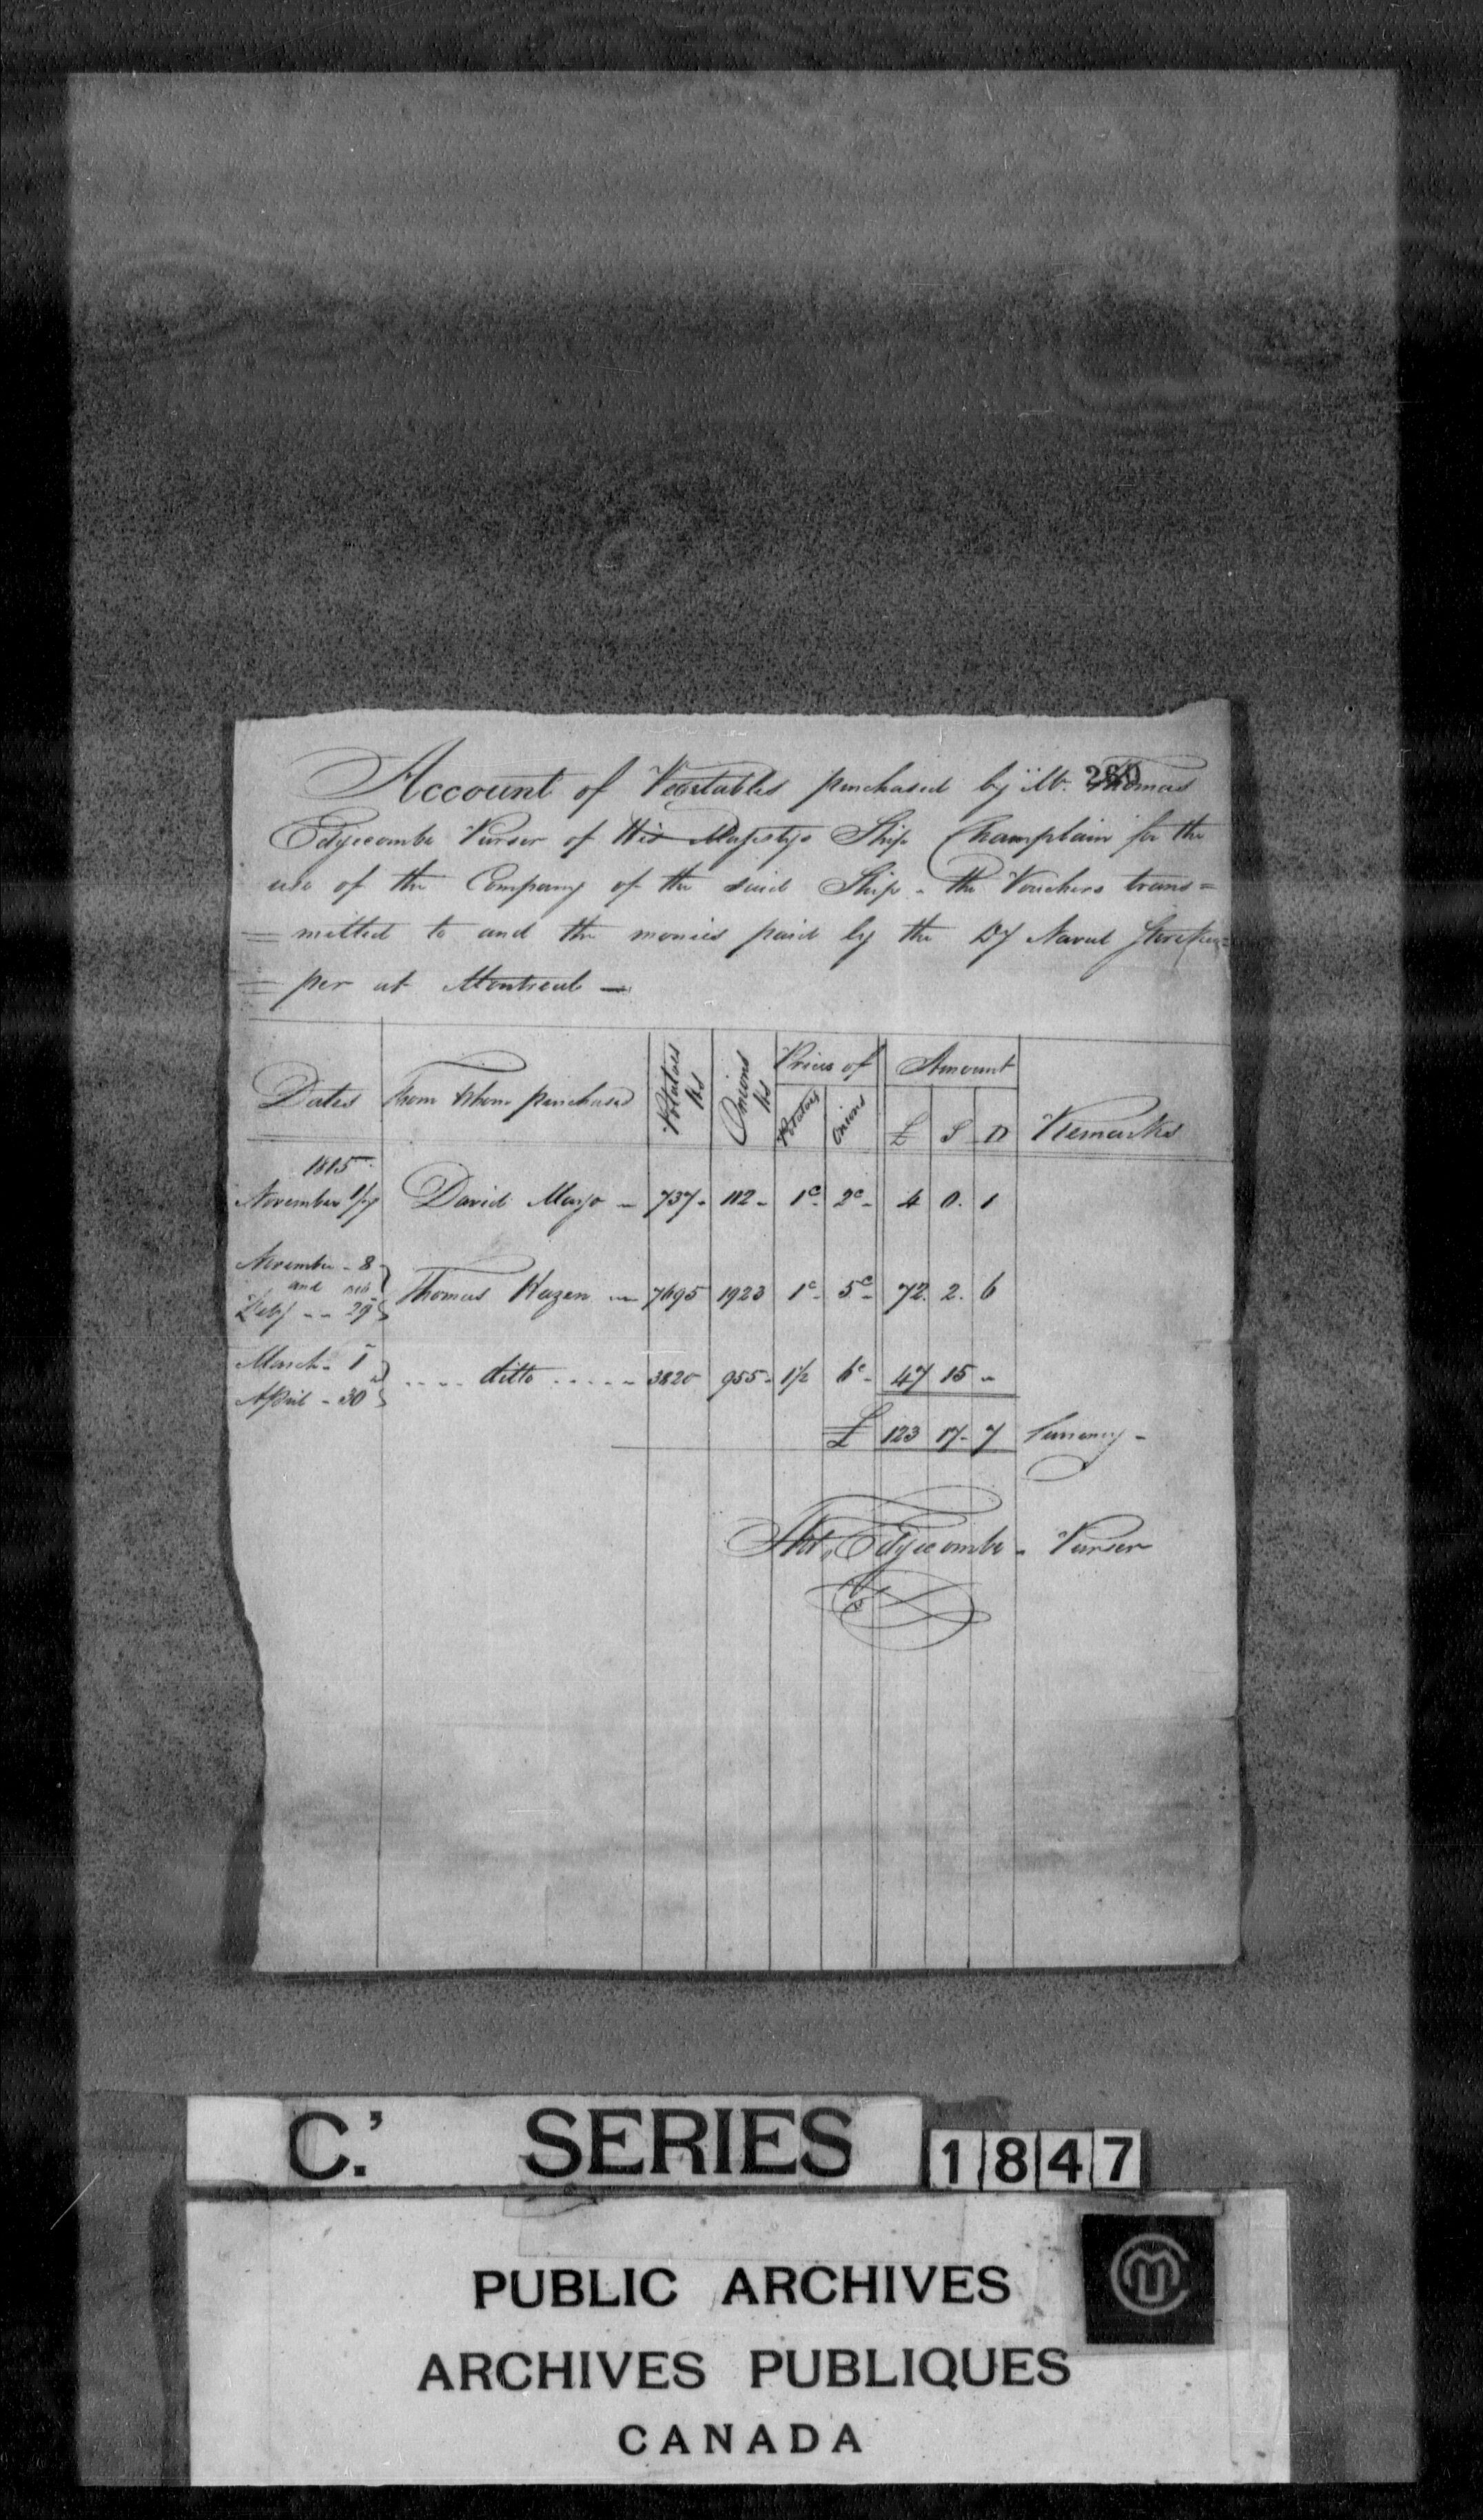 260
Account of Vegetables purchased by Mr. Thomas
Edgecombe Purser of His Majestys Ship Champlain for the
use of the Company of the said Ship - the Vouchers trans=
= mitted to and the monies paid by the Dy Naval Storekee=
= per at Montreal —
Dates From Whom purchased Potatoes lbs Onions lbs Prices of Potatoes Onions Amount £ S D Remarks
1815
November David Mayo - 737 - 112 - 1c - 2c - 4 0 . 1
November - 8
and
29 Thomas Hazen - 7695 1923 1c - 5c - 72 . 2 . 6
March - 1
April - 30 .... ditto ..... 3820 955 - 1½ 6c - 47 15 -
£ 123 17 - 7 Currency -
Thos. Edgecombe - Purser
C.' SERIES 1847
PUBLIC ARCHIVES
ARCHIVES PUBLIQUES
CANADA